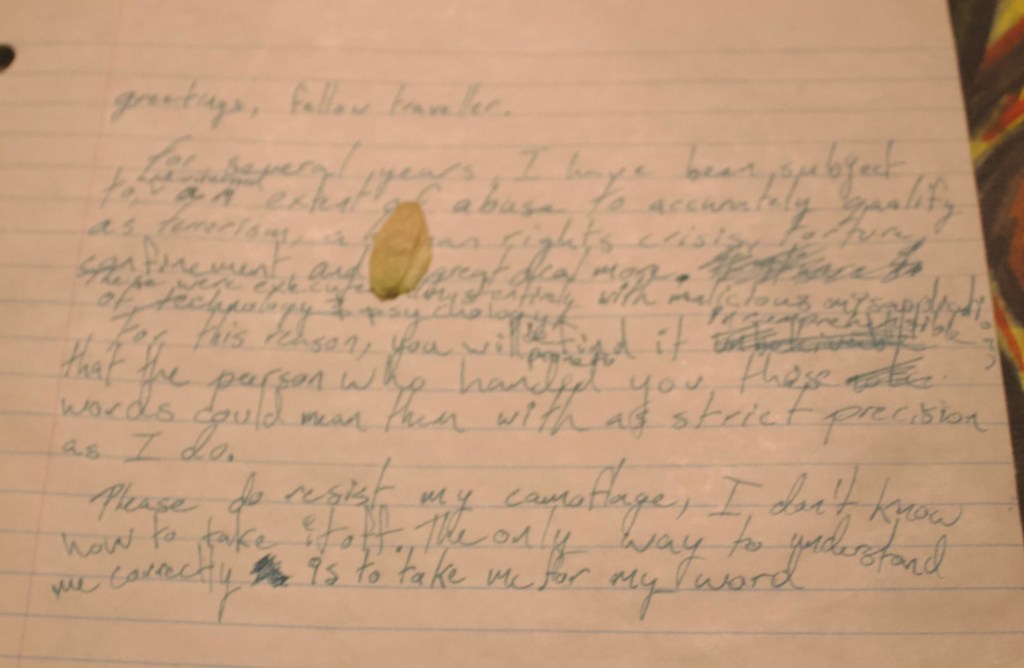 greetings, fellow traveller.
for several years, I have been subject
to an extent of abuse to accurately qualify
as terrorism, a rights crisis, torture,
confinement, and great deal more.
these were executed with malicious misapplication
of technology & psychology
For this reason, you will find it incomprehensible
that the person who handed you these
words could mean them with as strict precision
as I do.
Please do resist my camoflage, I don't know
how to take it off. The only way to understand
me correctly is to take me for my word